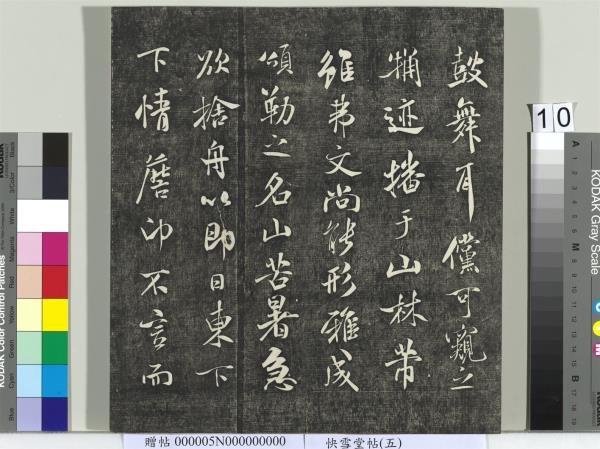 鼓舞耳儻可窺之
迹播于山林
雖弗文尚能形雅成
頌勒之名山苦暑急
欲捨舟以即日東下
下情瞻仰不言而
10
KODAK Gray Scale
A 1 2 3 4 5 6 M 8 9 10 11 12 13 14 15 B 17 18 19
KODAK Color Control Patches
Blue Cyan Green Yellow Red Magenta White 3/Color Black
贈帖 000005N000000000 快雪堂帖(五)